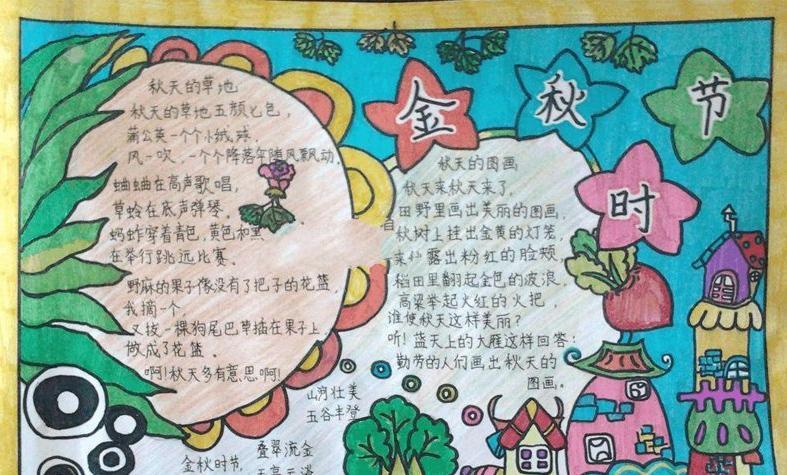 金秋时节
秋天的草地
秋天的草地五颜七色,
蒲公英一个个小绒球.
风一吹,一个个降落伞随风飘动.
蛐蛐在高声歌唱,
草蛉在底声弹琴.
蚂蚱穿着青色,黄色和黑
在举行跳远比赛.
野麻的果子像没有了把子的花篮,
我摘一个,
又拔一棵狗尾巴草插在果子上,
做成了花篮.
啊!秋天多有意思啊!
秋天的图画
秋天来秋天来了,
田野里画出美丽的图画,
秋树上挂出金黄的灯笼,
露出粉红的脸颊,
稻田里翻起金色的波浪,
高粱举起火红的火把,
谁使秋天这样美丽?
听!蓝天上的大雁这样回答:
勤劳的人们画出秋天的
图画。
山河壮美
五谷丰登
金秋时节,
叠翠流金